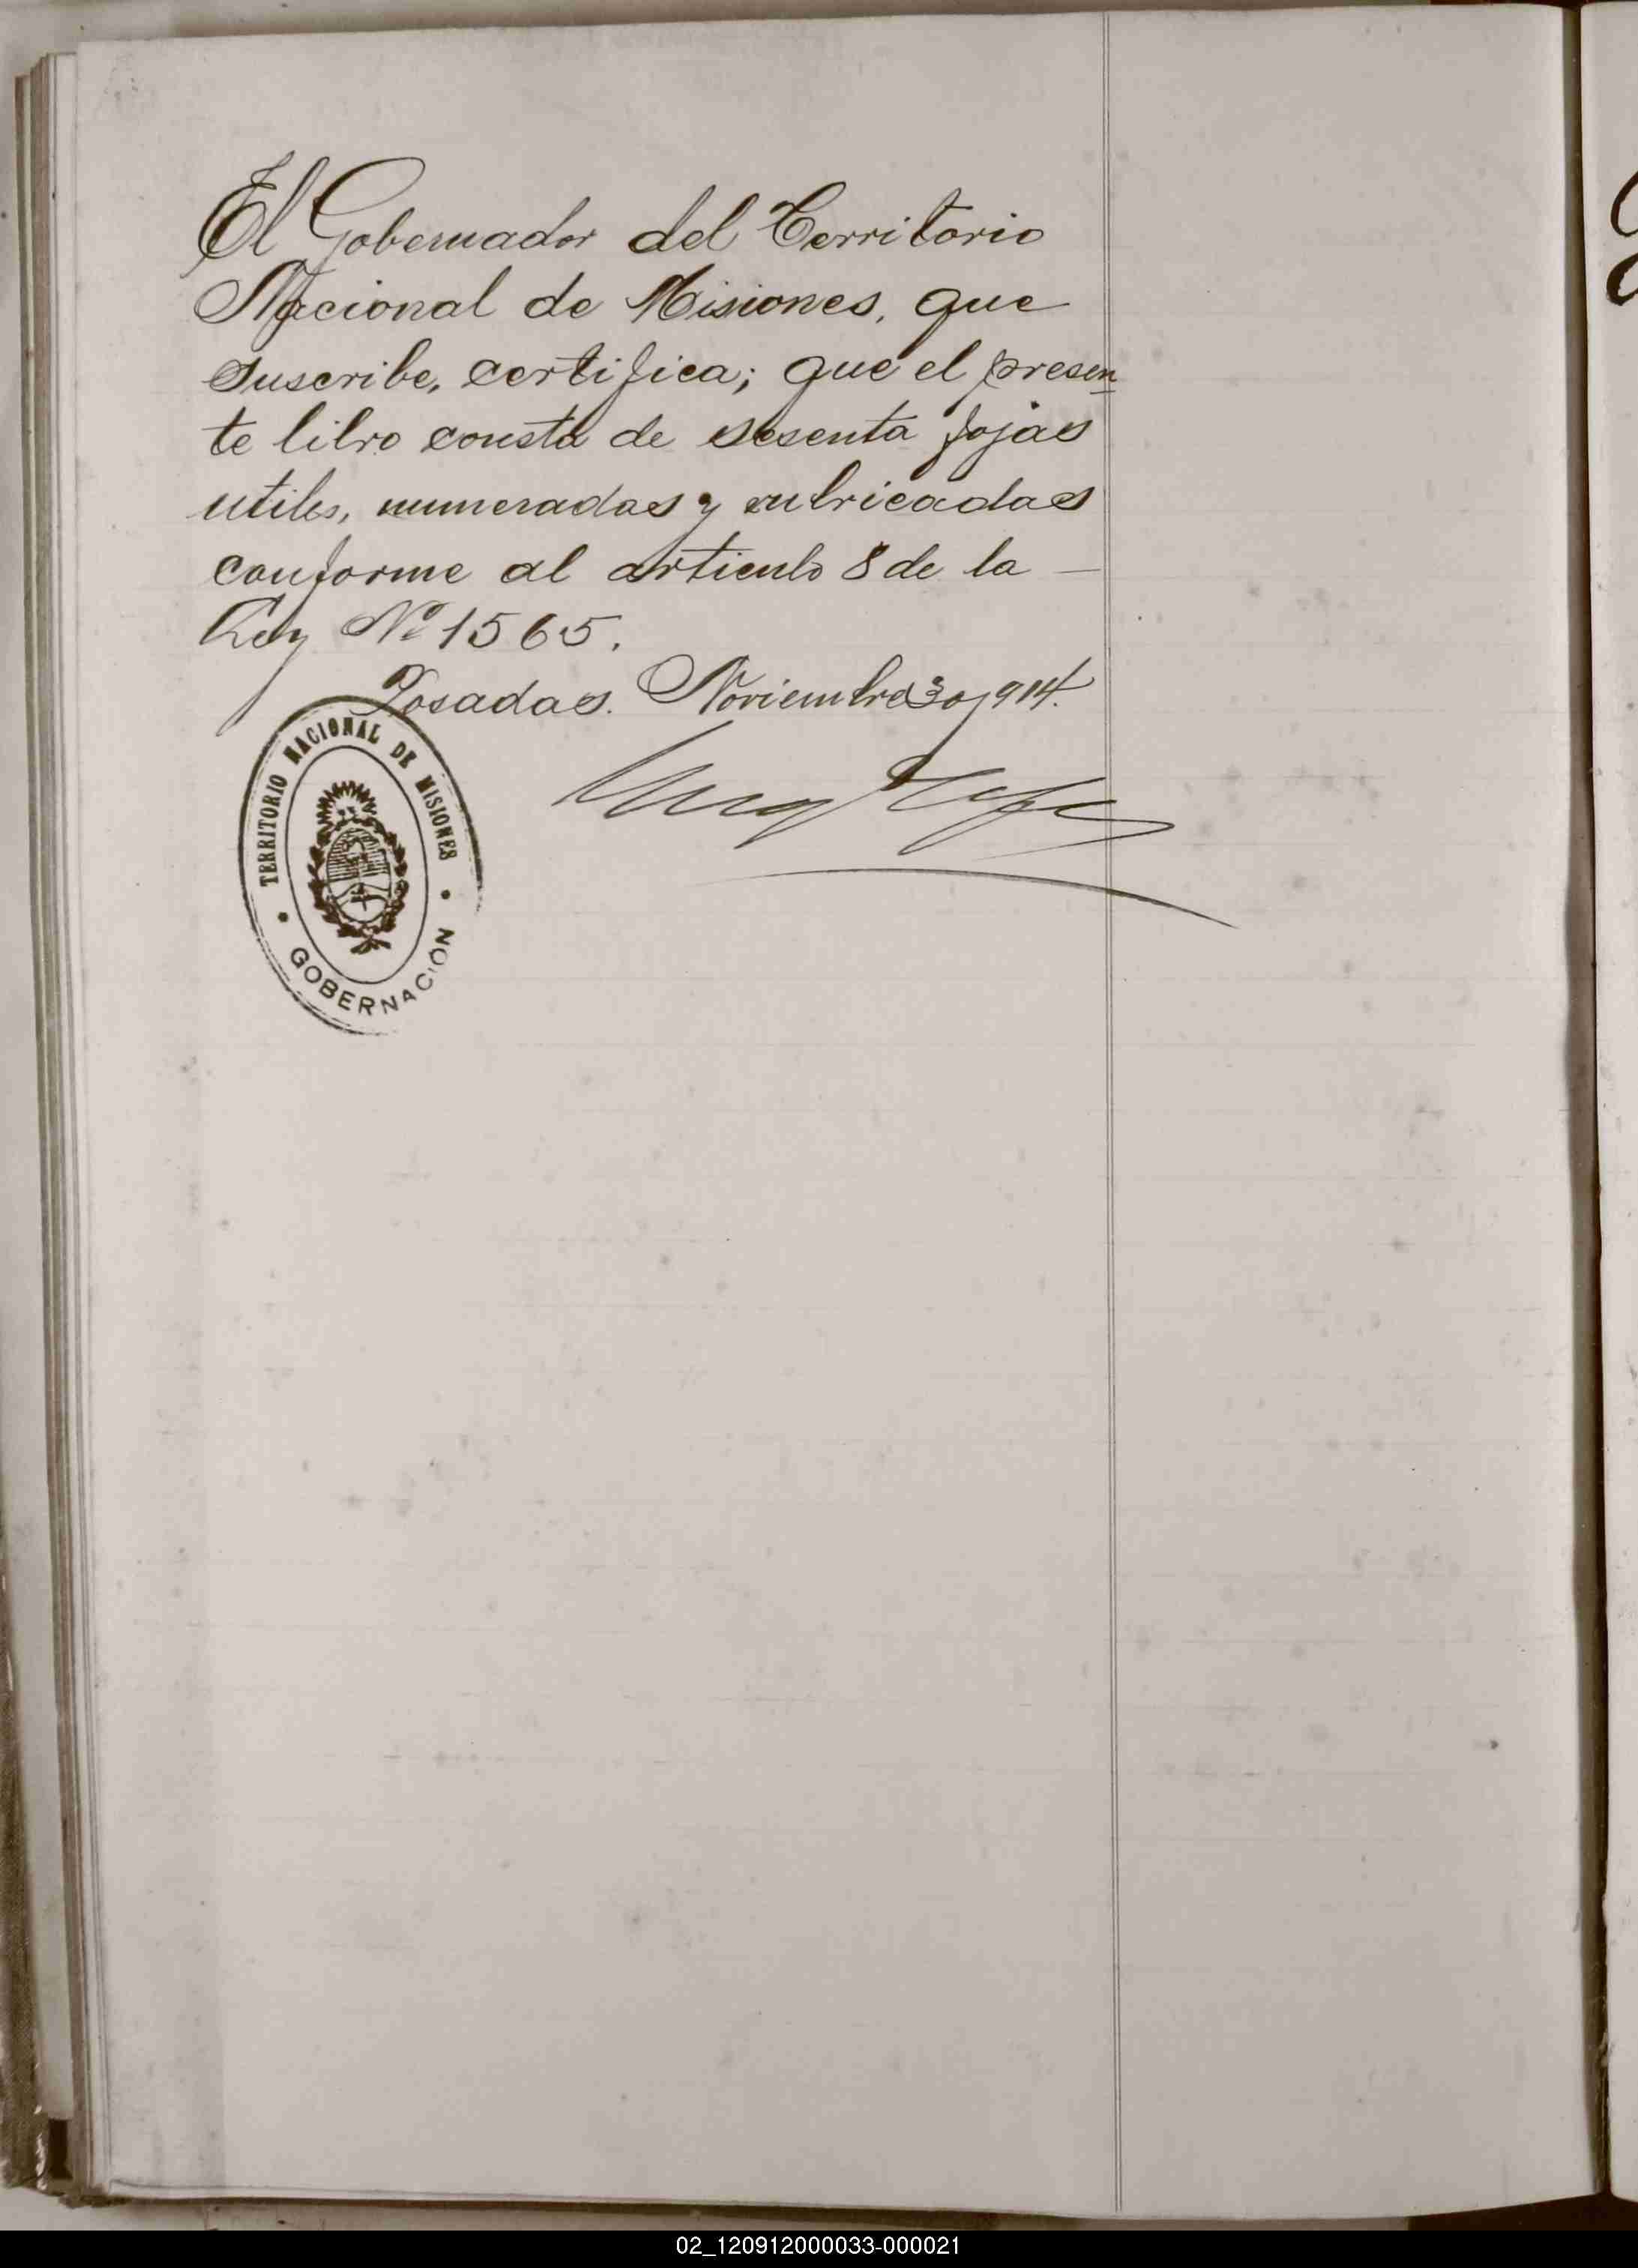 El Gobernador del Territorio
Nacional de Misiones, que
suscribe, certifica; que el presen
te libro consta de sesenta fojas
utiles, numeradas y rubricadas
conforme al articulo 8 de la —
Ley Nº 1565.
Posadas. Noviembre 30, 914.
TERRITORIO NACIONAL DE MISIONES
GOBERNACIÓN
02_120912000033-000021